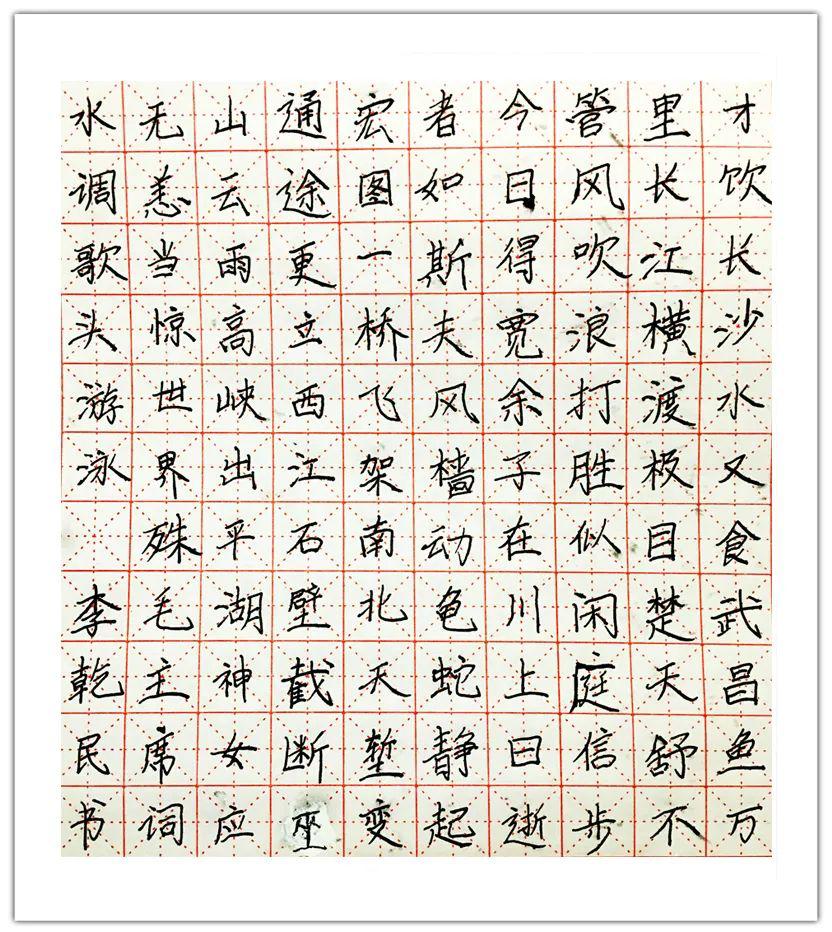 才饮长沙水又食武昌鱼万
里长江横渡极目楚天舒不
管风吹浪打胜似闲庭信步
今日得宽余子在川上曰逝
者如斯夫风樯动龟蛇静起
宏图一桥飞架南北天堑变
通途更立西江石壁截断巫
山云雨高峡出平湖神女应
无恙当惊世界殊毛主席词
水调歌头游泳 李乾民书